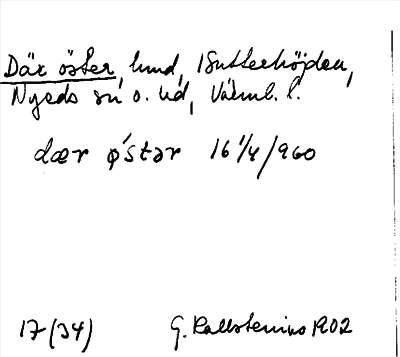 Där öster, hmd, 1 Sutterhöjden,
Nyeds sn o. hd, Värml. l.
dær ø´stər 16 1/4/960
17 (34) G. Kallstenius 1902